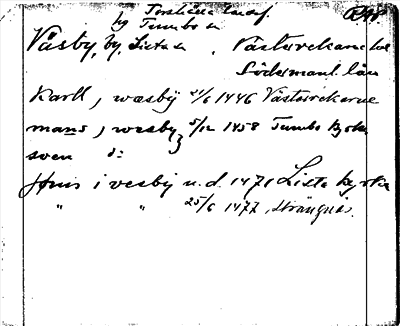 Torshälla landsf.
by Tumbo sn
Väsby, by, Lista sn, Västerrekarne hd
Södermanl. län
Karll, wæsby 21/6 1446 Västerrekarne
mans, wæsby 5/12 1458 Tumbo kyrka
sven d:
Jönis i vesby u.d. 1471 Lista kyrka
" " 25/6 1477, Strängnäs.